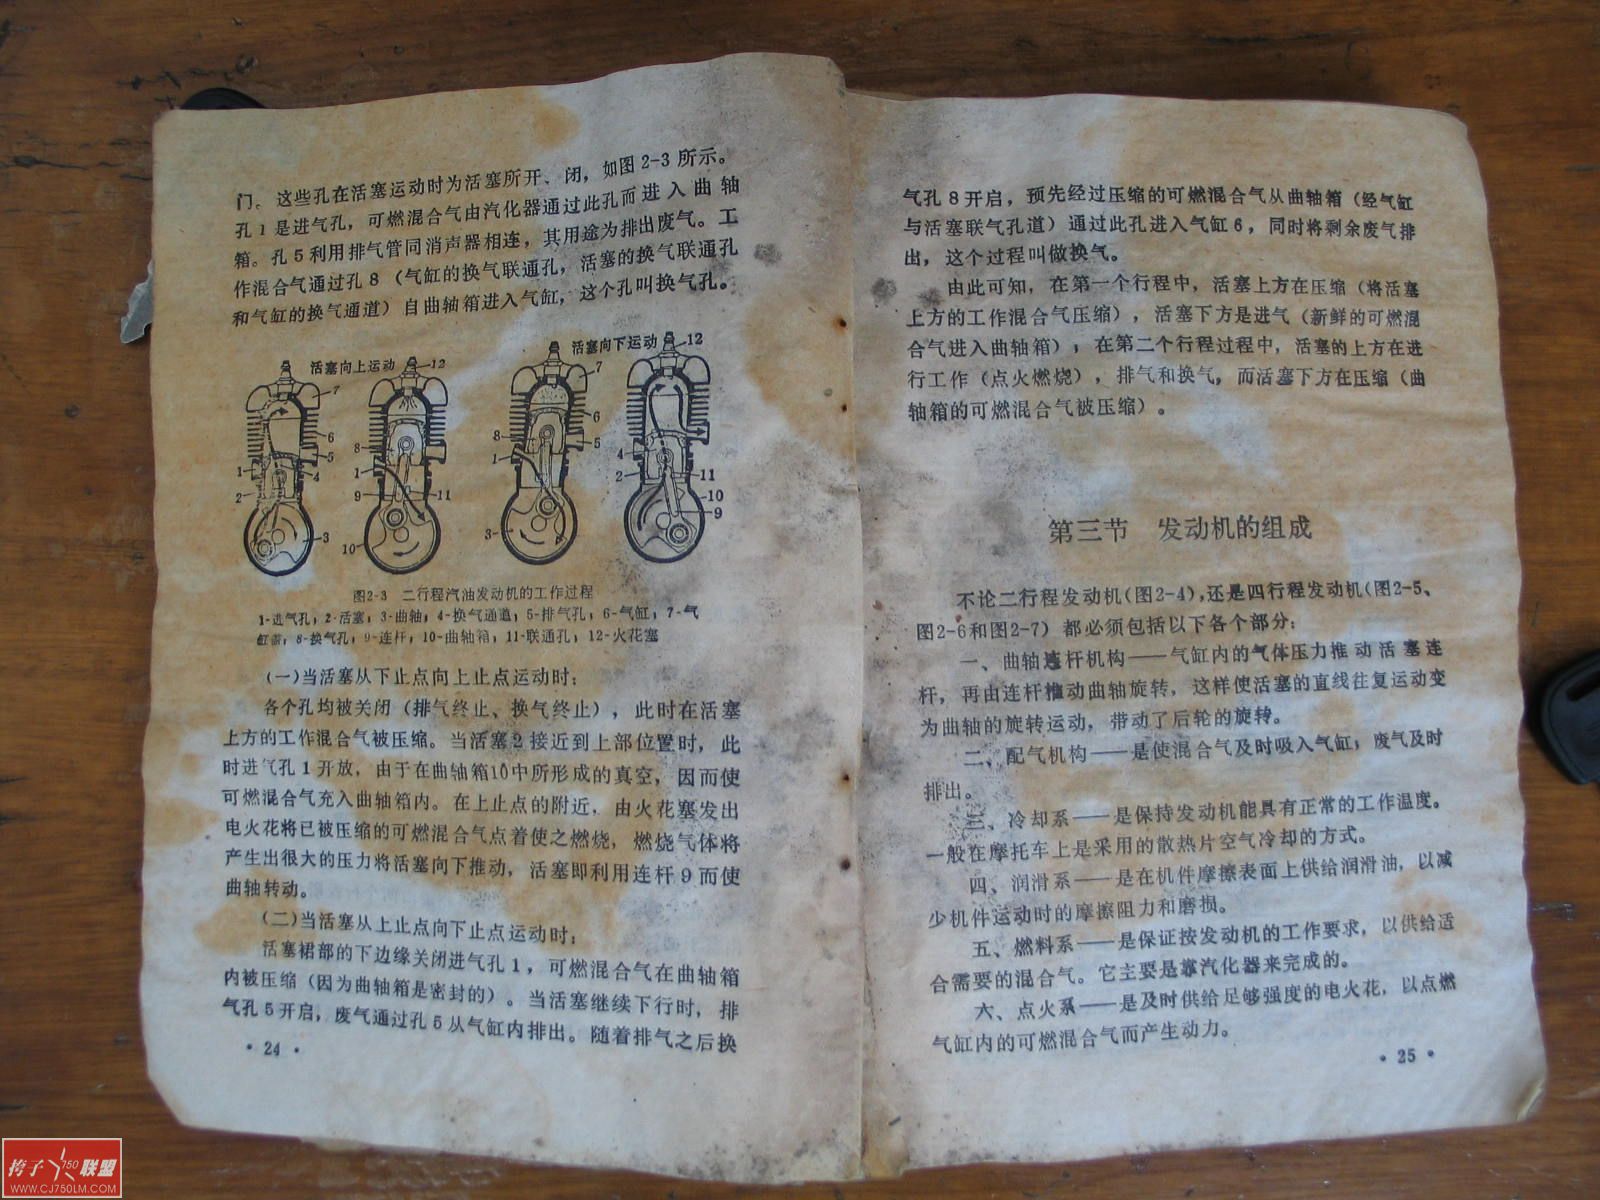 门。这些孔在活塞运动时为活塞所开、闭，如图2-3所示。
孔1是进气孔，可燃混合气由汽化器通过此孔而进入曲轴
箱。孔5利用排气管同消声器相连，其用途为排出废气。工
作混合气通过孔8（气缸的换气联通孔，活塞的换气联通孔
和气缸的换气通道）自曲轴箱进入气缸，这个孔叫换气孔。
活塞向上运动
12
活塞向下运动
12
7
6
5
4
1
2
3
8
1
9
11
10
7
6
5
8
1
3
4
2
11
10
9
图2-3 二行程汽油发动机的工作过程
1-进气孔；2-活塞；3-曲轴；4-换气通道；5-排气孔；6-气缸；7-气
缸盖；8-换气孔；9-连杆；10-曲轴箱；11-联通孔；12-火花塞
(一)当活塞从下止点向上止点运动时：
各个孔均被关闭（排气终止、换气终止），此时在活塞
上方的工作混合气被压缩。当活塞2接近到上部位置时，此
时进气孔1开放，由于在曲轴箱10中所形成的真空，因而使
可燃混合气充入曲轴箱内。在上止点的附近，由火花塞发出
电火花将已被压缩的可燃混合气点着使之燃烧，燃烧气体将
产生出很大的压力将活塞向下推动，活塞即利用连杆9而使
曲轴转动。
(二)当活塞从上止点向下止点运动时：
活塞裙部的下边缘关闭进气孔1，可燃混合气在曲轴箱
内被压缩（因为曲轴箱是密封的）。当活塞继续下行时，排
气孔5开启，废气通过孔5从气缸内排出。随着排气之后换
·24·
气孔8开启，预先经过压缩的可燃混合气从曲轴箱（经气缸
与活塞联气孔道）通过此孔进入气缸6，同时将剩余废气排
出，这个过程叫做换气。
由此可知，在第一个行程中，活塞上方在压缩（将活塞
上方的工作混合气压缩），活塞下方是进气（新鲜的可燃混
合气进入曲轴箱）；在第二个行程过程中，活塞的上方在进
行工作（点火燃烧），排气和换气，而活塞下方在压缩（曲
轴箱的可燃混合气被压缩）。
第三节 发动机的组成
不论二行程发动机(图2-4)，还是四行程发动机(图2-5、
图2-6和图2-7）都必须包括以下各个部分：
一、曲轴连杆机构——气缸内的气体压力推动活塞连
杆，再由连杆推动曲轴旋转，这样使活塞的直线往复运动变
为曲轴的旋转运动，带动了后轮的旋转。
二、配气机构——是使混合气及时吸入气缸，废气及时
排出。
三、冷却系——是保持发动机能具有正常的工作温度。
一般在摩托车上是采用的散热片空气冷却的方式。
四、润滑系——是在机件摩擦表面上供给润滑油，以减
少机件运动时的摩擦阻力和磨损。
五、燃料系——是保证按发动机的工作要求，以供给适
合需要的混合气。它主要是靠汽化器来完成的。
六、点火系——是及时供给足够强度的电火花，以点燃
气缸内的可燃混合气而产生动力。
·25·
挎子750联盟
WWW.CJ750LM.COM